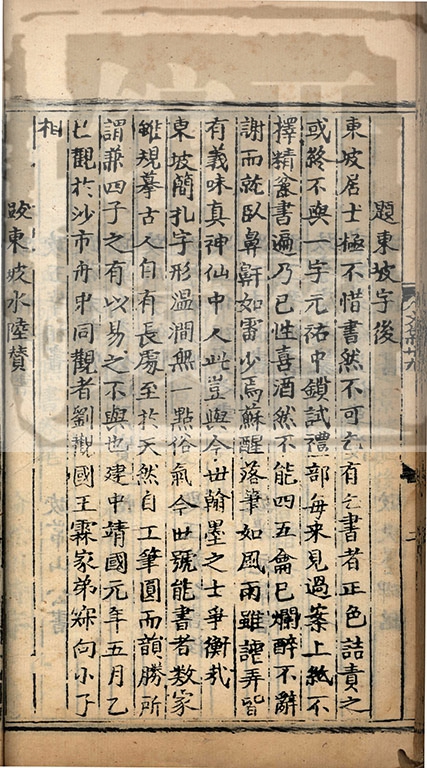 題東坡字後
東坡居士極不惜書然不可乞有乞書者正色詰責之
或終不與一字元祐中鎖試禮部每来見過案上紙不
擇精麄書遍乃已性喜酒然不能四五龠已爛醉不辭
謝而就臥鼻鼾如雷少焉蘇醒落筆如風雨雖謔弄皆
有義味真神仙中人此豈與今世翰墨之士爭衡哉
東坡簡札字形温潤無一點俗氣今世號能書者數家
雖規摹古人自有長處至於天然自工筆圓而韻勝所
謂兼四子之有以易之不與也建中靖國元年五月乙
巳觀於沙市舟中同觀者劉觀國王霖家弟叔向小子
相
跋東坡水陸贊